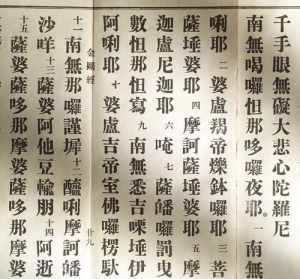 千手眼無礙大悲心陀羅尼
南無喝囉怛那哆囉夜耶 一 南無
唎耶 二 婆盧羯帝爍鉢囉耶 三 菩
薩埵婆耶 四 摩訶薩埵婆耶 五 摩
迦盧尼迦耶 六 唵 七 薩皤囉罰曳
數怛那怛寫 九 南無悉吉㗚埵伊
阿唎耶 十 婆盧吉帝室佛囉楞馱
金剛經 廿九
十一 南無那囉謹墀 十二 醯唎摩訶皤
沙咩 十三 薩婆阿他豆輸朋 十四 阿逝
十五 薩婆薩哆那摩婆薩多那摩婆